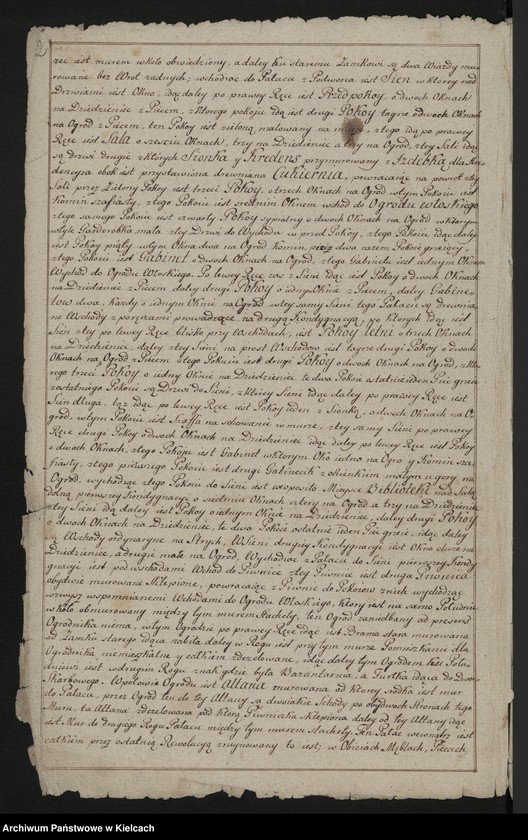 2
rzec iest murem wkoło obwiedziony, a daley ku staremu Zamkowi są dwa Wiazdy mu-
rowane bez Wrot żadnych; wchodząc do Pałacu z Podworca iest Sien w ktorey nad
Drzwiami iest Okno, idąc daley po prawey Ręce iest Przedpokoy, o dwoch Oknach
na Dziedziniec z Piecem, z ktorego pokoiu idą iest drugi Pokoy tayże o dwoch Oknach
na Ogrod z Piecem, ten Pokoy iest zielono malowany na murze, z tego idą po prawey
Ręce iest Sala o sześciu Oknach, trzy na Dziedziniec a trzy na Ogrod, z tey Sali idąc
są drzwi drugie z ktorych Sionka y Kredens przymurowany z Izdebką dla Kre-
dencyrza obok iest przystawiona drewniana Cukiernia, powracaiąc na powrot z tey
Sali przez Zielony Pokoy iest trzeci Pokoy, o trzech Oknach na Ogrod w tym Pokoiu iest
Komin szafiasty, z tego Pokoiu iest srednim Oknem wchod do Ogrodu włoskiego
z tego samego Pokoiu iest czwarty Pokoy sypialny o dwoch Oknach na Ogrod w ktorym
w tyle Garderobka mała z tey Drzwi do Wychodu i w przed Pokoy, z tego Pokoiu idąc daley
iest Pokoy piąty w tym Okna dwa na Ogrod komin, piec dwa razem Pokoie grzeiący,
z tego Pokoiu iest Gabinet o dwoch Oknach na Ogrod, z tego Gabinetu iest iednym Oknem
Wychod do Ogrodu Włoskiego. Po lewey Ręce zas z Sieni idąc iest Pokoy o dwoch Oknach
na Dziedziniec z Piecem, daley drugi Pokoy o iednym Oknie z Piecem, daley Gabine-
tow dwa, każdy o iednym Oknie na Ogrod w tey samey Sieni tego Pałacu są drewnia-
ne Wschody z poręczami prowadzące na drugą Kondygnacyą, po ktorych idąc iest
Sień z tey po lewey Ręce blisko przy Wschodach, iest Pokoy letni o trzech Oknach
na Dziedziniec daley z tey Sieni na prost Wschodow iest tayże drugi Pokoy o dwoch
Oknach na Ogrod z Piecem z tego Pokoiu iest drugi Pokoy o dwoch Oknach na Ogrod, z kto-
rego trzeci Pokoy o iedny Oknie na Dziedziniec te dwa Pokoie ostatnie ieden Piec grzeie
z ostatniego Pokoiu są Drzwi do Sieni, z ktorey Sieni idąc daley po prawey Ręce iest
Sień długa, tąż idąc po lewey Ręce iest Pokoy ieden z Sionką, o dwoch Oknach na O-
grod, w tym Pokoiu iest Szaffa na schowanie w murze, z tey samy Sieni po prawey
Ręce drugi Pokoy o dwoch Oknach na Dziedziniec idąc daley po lewey Ręce iest Pokoy
o dwoch Oknach, z tego Pokoiu iest Gabinet w ktorym Okno iedno na Ogro y Komin sza-
fiasty, z tego pierwszego Pokoiu iest drugi Gabinecik z okienkiem małym u gory na
Ogrod, wychodząc z tego Pokoiu do Sieni iest exoposito Mieysce Biblioteki nad Salą
dolną pierwszey Kondygnacyi o siedmiu Oknach cztery na Ogrod a trzy na Dziedziniec
z tey Sieni idą daley iest Pokoy o iednym Oknie na Dziedziniec, daley drugi Pokoy
o dwoch Oknach na Dziedziniec, te dwa Pokoie ostatnie ieden Piec grzeie, idąc daley
Wschody ordynaryine na Strych, W Sieni drugiey Kondygnacyi iest Okno duże na
Dziedziniec, a drugi małe na Ogrod, Wychodząc z Pałacu do Sieni pierwszey Kondy
gnacyi iest pod wschodami Wchod do Piwnice z tey Piwnice iest druga Piwnica
obydwie murowane Sklepione, powracaiąc z Piwnic do Pokoiow z nich wychodząc
wzwysz wspomnianemi Wschodami do Ogrodu Włoskiego, ktory iest na samo Południe
w koło obmurowany między tym murem Stachety, ten Ogrod zaniedbany ad presens
Ogrodnika niema, w tym Ogrodzie po prawey Ręce idąc iest Brama stara murowana
od Zamku starego idąca zabita daley w Rogu iest przy tym murze Pomieszkanie dla
Ogrodnika niemieszkalne y całkiem zdezelowane, idąc daley tym Ogrodem ku Poła-
dniowi iest w drugim Rogu znak gdzie była Bazantarnia, a Furtka idąca do Dwor-
Skarbowego. W połowie Ogrodu iest Altana murowana od ktorey sadka iest mur
do Pałacu, przez Ogrod ten do tey Altany są dwoiakie Schody po obydwoch Stronach tego
Muru, ta Altana zdezelowana pod ktorą Piwniczka sklepiona daley od tey Altany idąc
iest Mur do drugiego Rogu Pałacu między tym murem stachety. Ten Pałac wewnątrz iest
całkiem przez ostatnią Rewolucyą zruynowany to iest; w Obiciach, Meblach, Piecach
Archiwum Państwowe w Kielcach